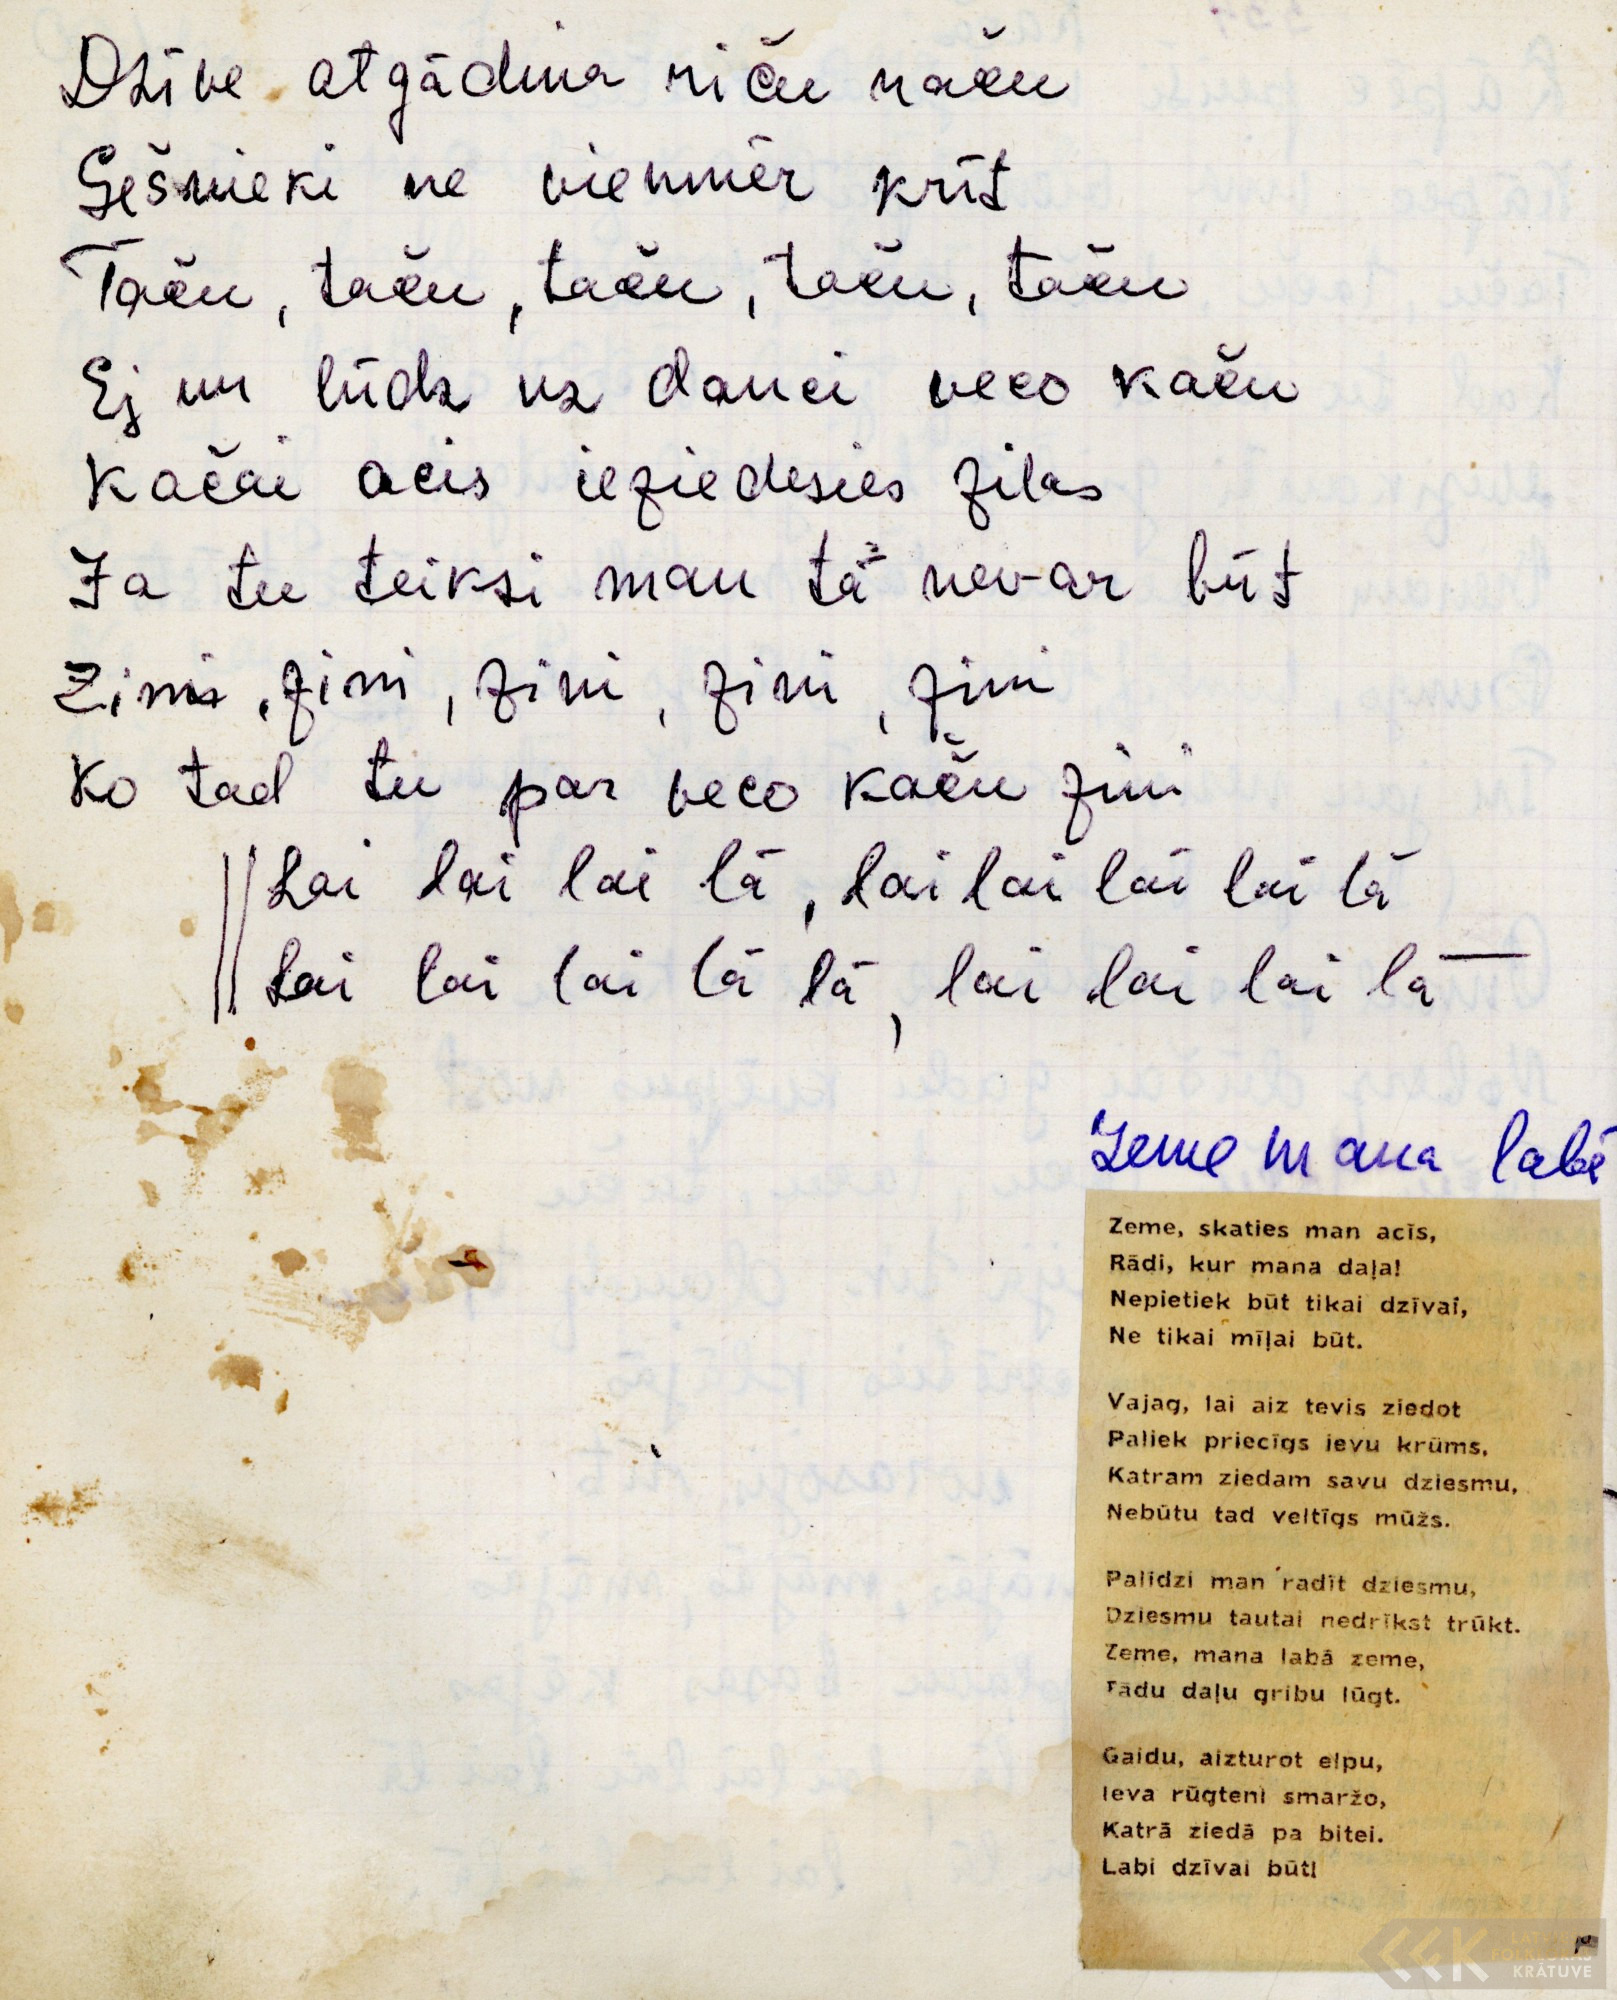 Dzīve atgādina riču raču
Gešnieki ne vienmēr krīt
Taču, taču, taču, taču, taču
Ej un lūdz uz danci veco kaču
Kačai acis ieziedesies zilas
Ja tu teiksi man tā nevar būt
Zini, zini, zini, zini, zini
Ko tad tu par veco kaču zini
Lai lai lai lā, lai lai lai lai lā
Lai lai lai lā lā, lai lai lai lā
Zeme mana labā
Zeme, skaties man acīs,
Rādi, kur mana daļa!
Nepietiek būt tikai dzīvai,
Ne tikai mīļai būt.
Vajag, lai aiz tevis ziedot
Paliek priecīgs ievu krūms,
Katram ziedam savu dziesmu,
Nebūtu tad veltīgs mūžs.
Palīdzi man radīt dziesmu,
Dziesmu tautai nedrīkst trūkt.
Zeme, mana labā zeme,
Tādu daļu gribu lūgt.
Gaidu, aizturot elpu,
Ieva rūgteni smaržo,
Katrā ziedā pa bitei.
Labi dzīvai būt!
LATVIEŠU
FOLKLORAS
KRĀTUVE